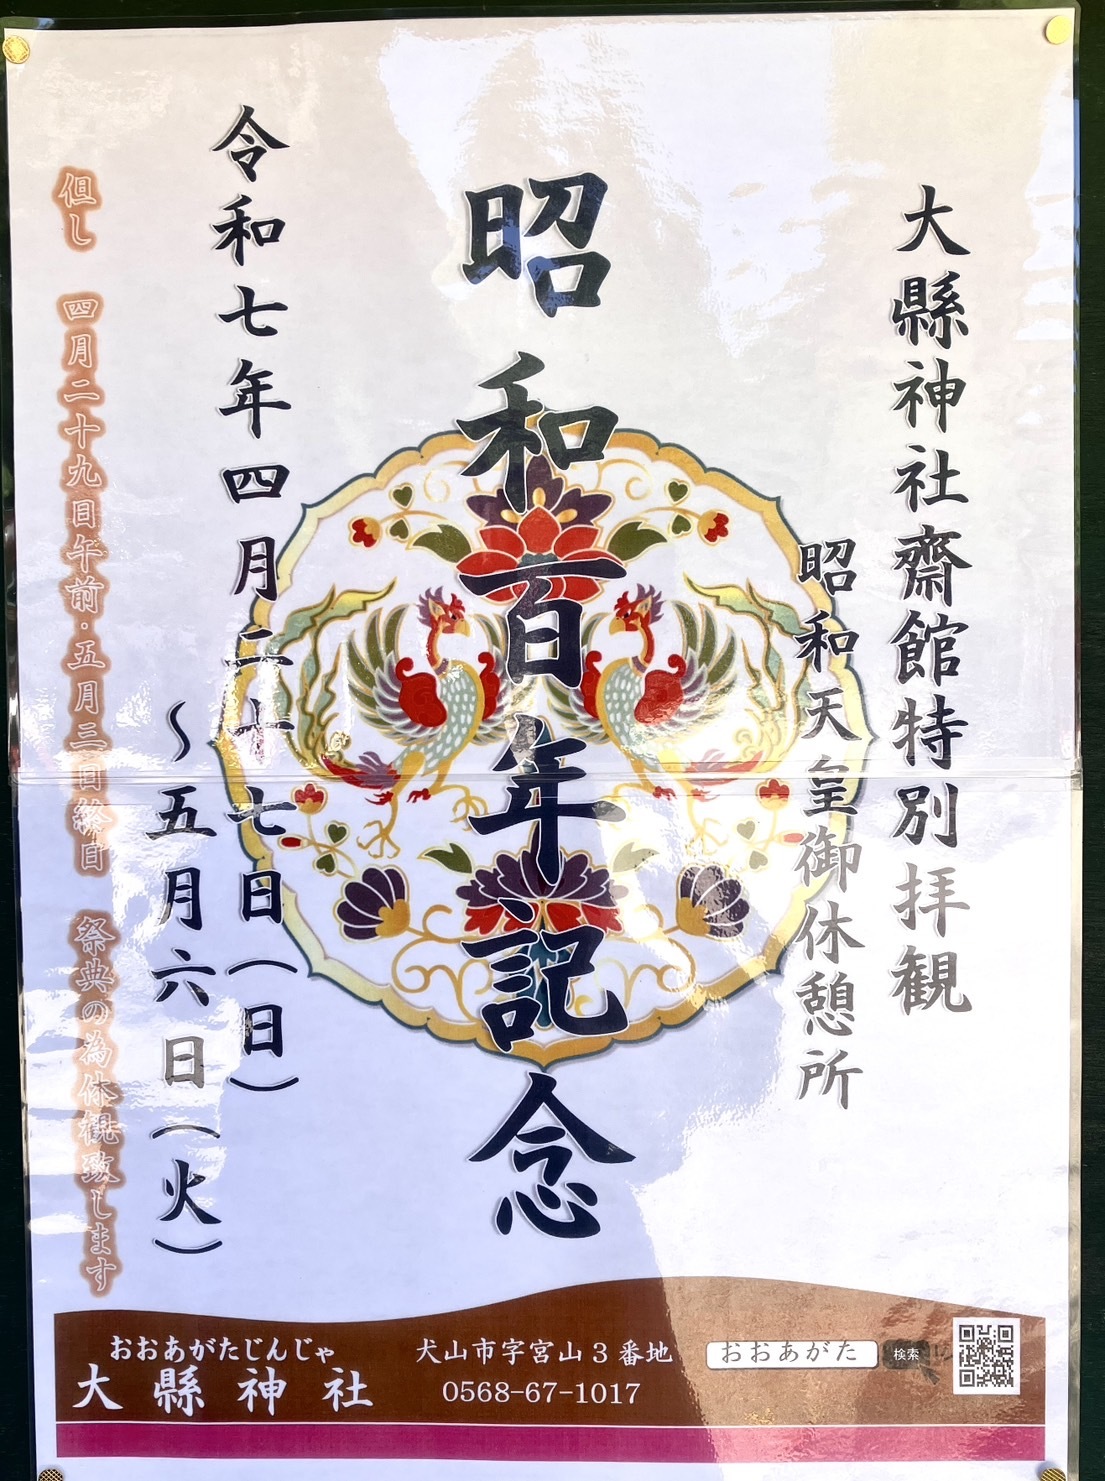 大縣神社齋館特別拝観
昭和天皇御休憩所
昭和百年記念
令和七年四月二十七日(日)
〜五月六日(火)
但し 四月二十九日午前・五月三日終日 祭典の為休観致します
おおあがたじんじゃ
大縣神社
犬山市字宮山3番地
0568-67-1017
おおあがた
検索